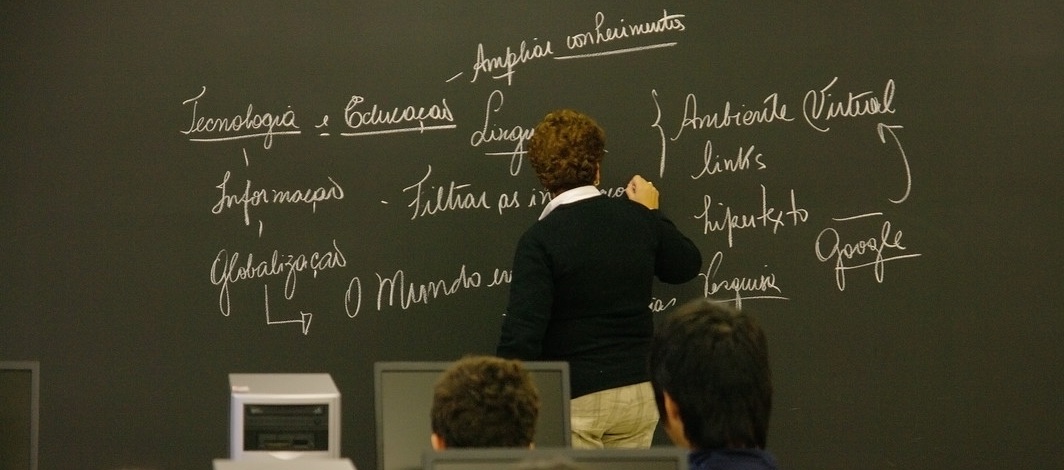 - Ampliar conhecimentos
Tecnologia e Educação
Ambiente Virtual
links
Informação - Filtrar as
hipertexto
Google
Globalização
O Mundo
Pesquisa